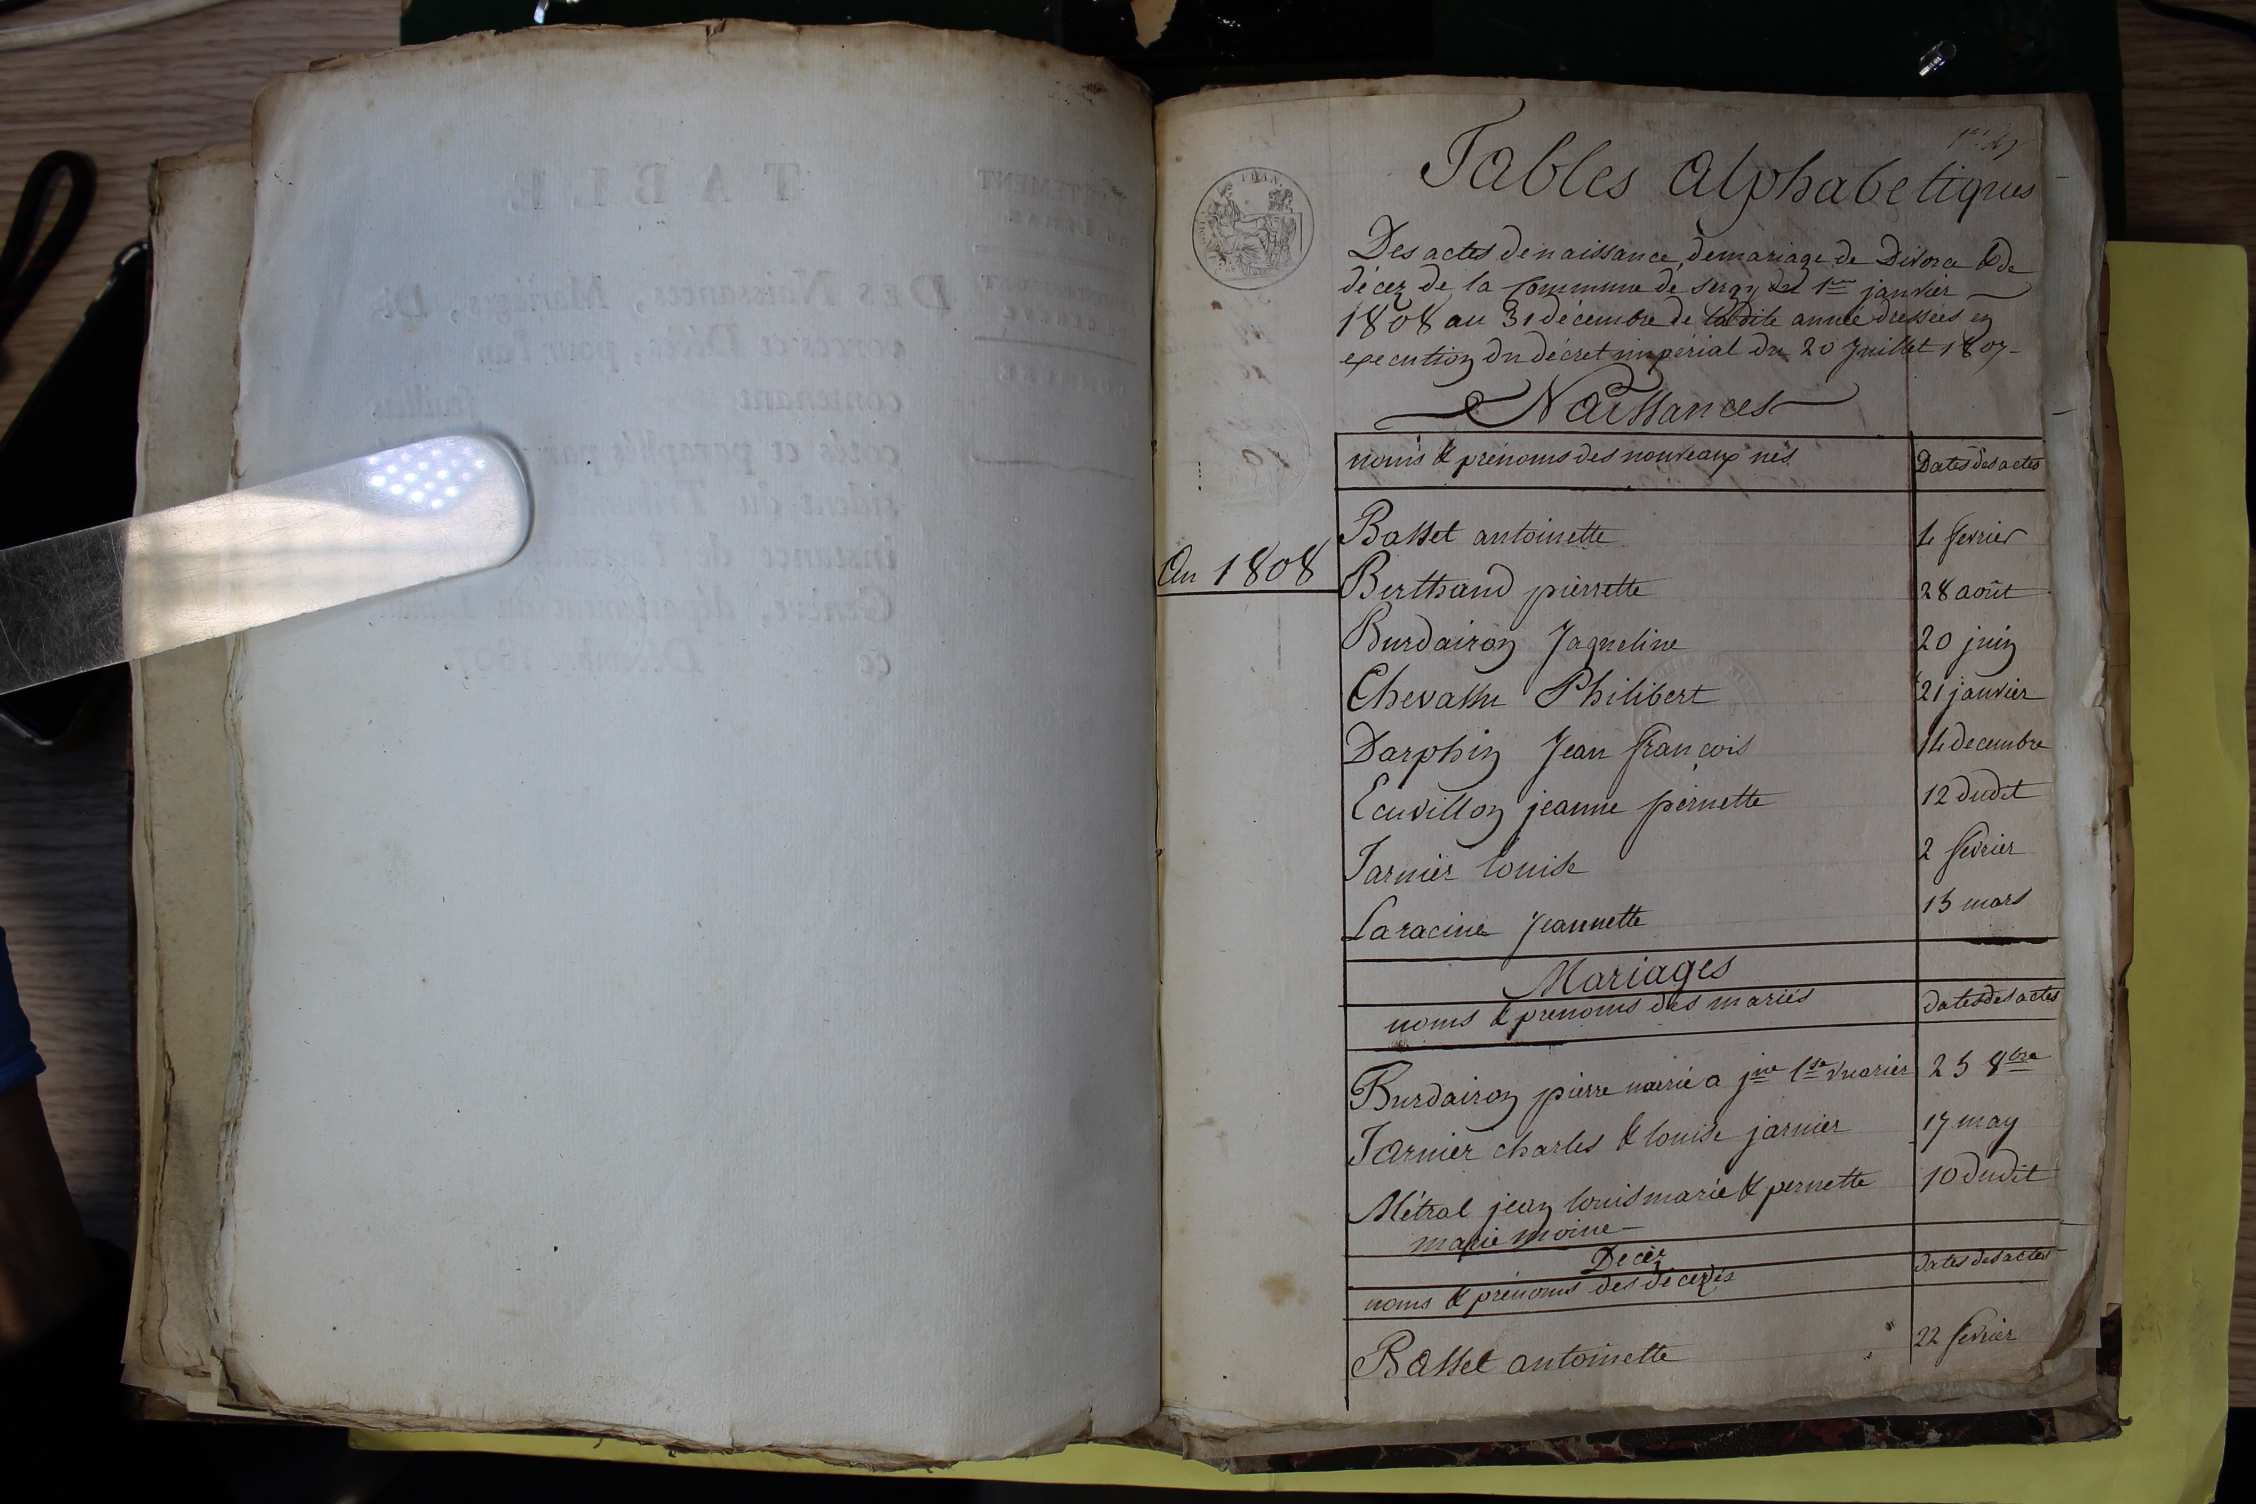 Tables alphabetiques
Des actes de naissance, de mariage de Divorce & de
décez de la Commune de Sergy du 1er janvier
1808 au 31 décembre de ladite année dressées en
execution du décret impérial du 20 Juillet 1807 -
Naissances
noms & prénoms des nouveaux nés Dates des actes
An 1808
Basset antoinette 4 fevrier
Berthand pierrette 28 août
Burdairon Jaqueline 20 juin
Chevassu Philibert 21 janvier
Darphin Jean françois 14 decembre
Ecuvillon jeanne pernette 12 dudit
Jarnier louise 2 fevrier
Laracine Jeannette 13 mars
Mariages
noms & prenoms des mariés dates des actes
Burdairon pierre marié a jne lse 25 8bre
Jarnier charles & louise jarnier 17 may
Métral jean louis marié & pernette 10 dudit
marie moine -
Décèz
noms & prénoms des décedés dates des actes
Basset antoinette 22 fevrier
TABLE
DES Naissances, Mariages, Di-
vorces et Décès, pour l'an
contenant feuillets
cotés et paraphés par
sident du Tribunal
instance de l'arrondissement
Genève, département du Léman
ce